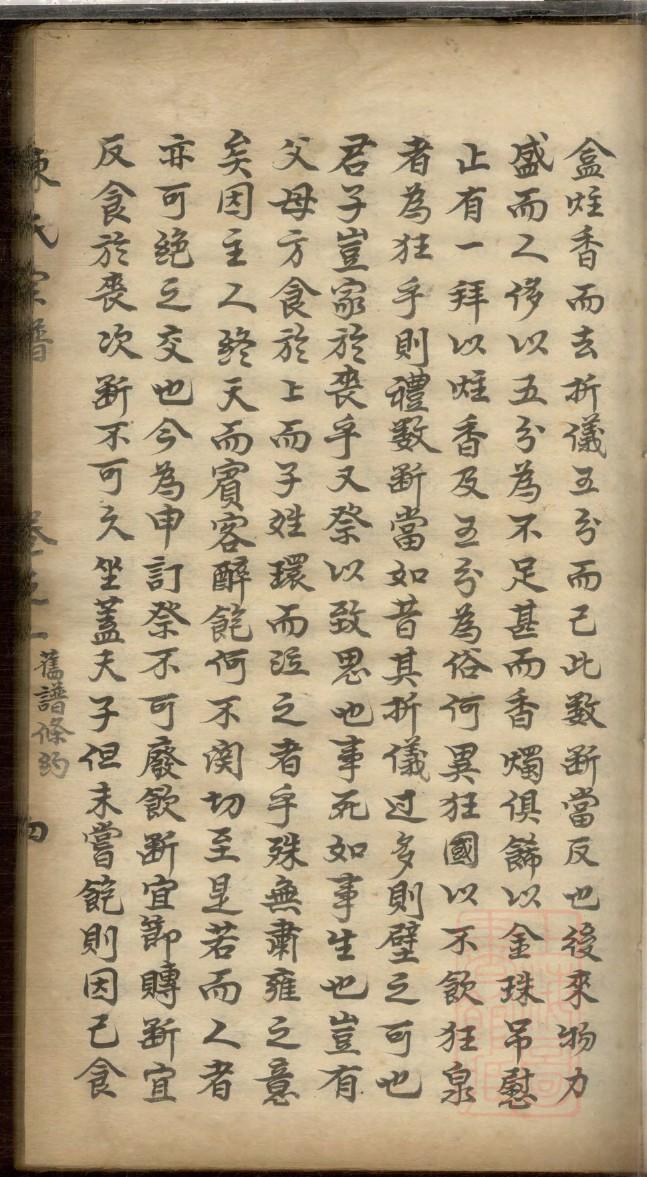 盒炷香而去折儀五分而已此數断當反也後來物力
盛而人侈以五分為不足甚而香燭俱飾以金珠吊慰
止有一拜以炷香及五分為俗何異狂國以不飲狂泉
者為狂乎則禮數断當如昔其折儀过多則璧之可也
君子豈家於喪乎又祭以致思也事死如事生也豈有
父母方食於上而子姓環而泣之者乎殊無肅雍之意
矣因主人終天而賓客醉飽何不関切至是若而人者
亦可絶之交也今為申訂祭不可廢飲断宜節賻断宜
反食於喪次断不可久坐蓋夫子但未嘗飽則因已食
陳氏宗譜 卷之一 舊譜條約 四